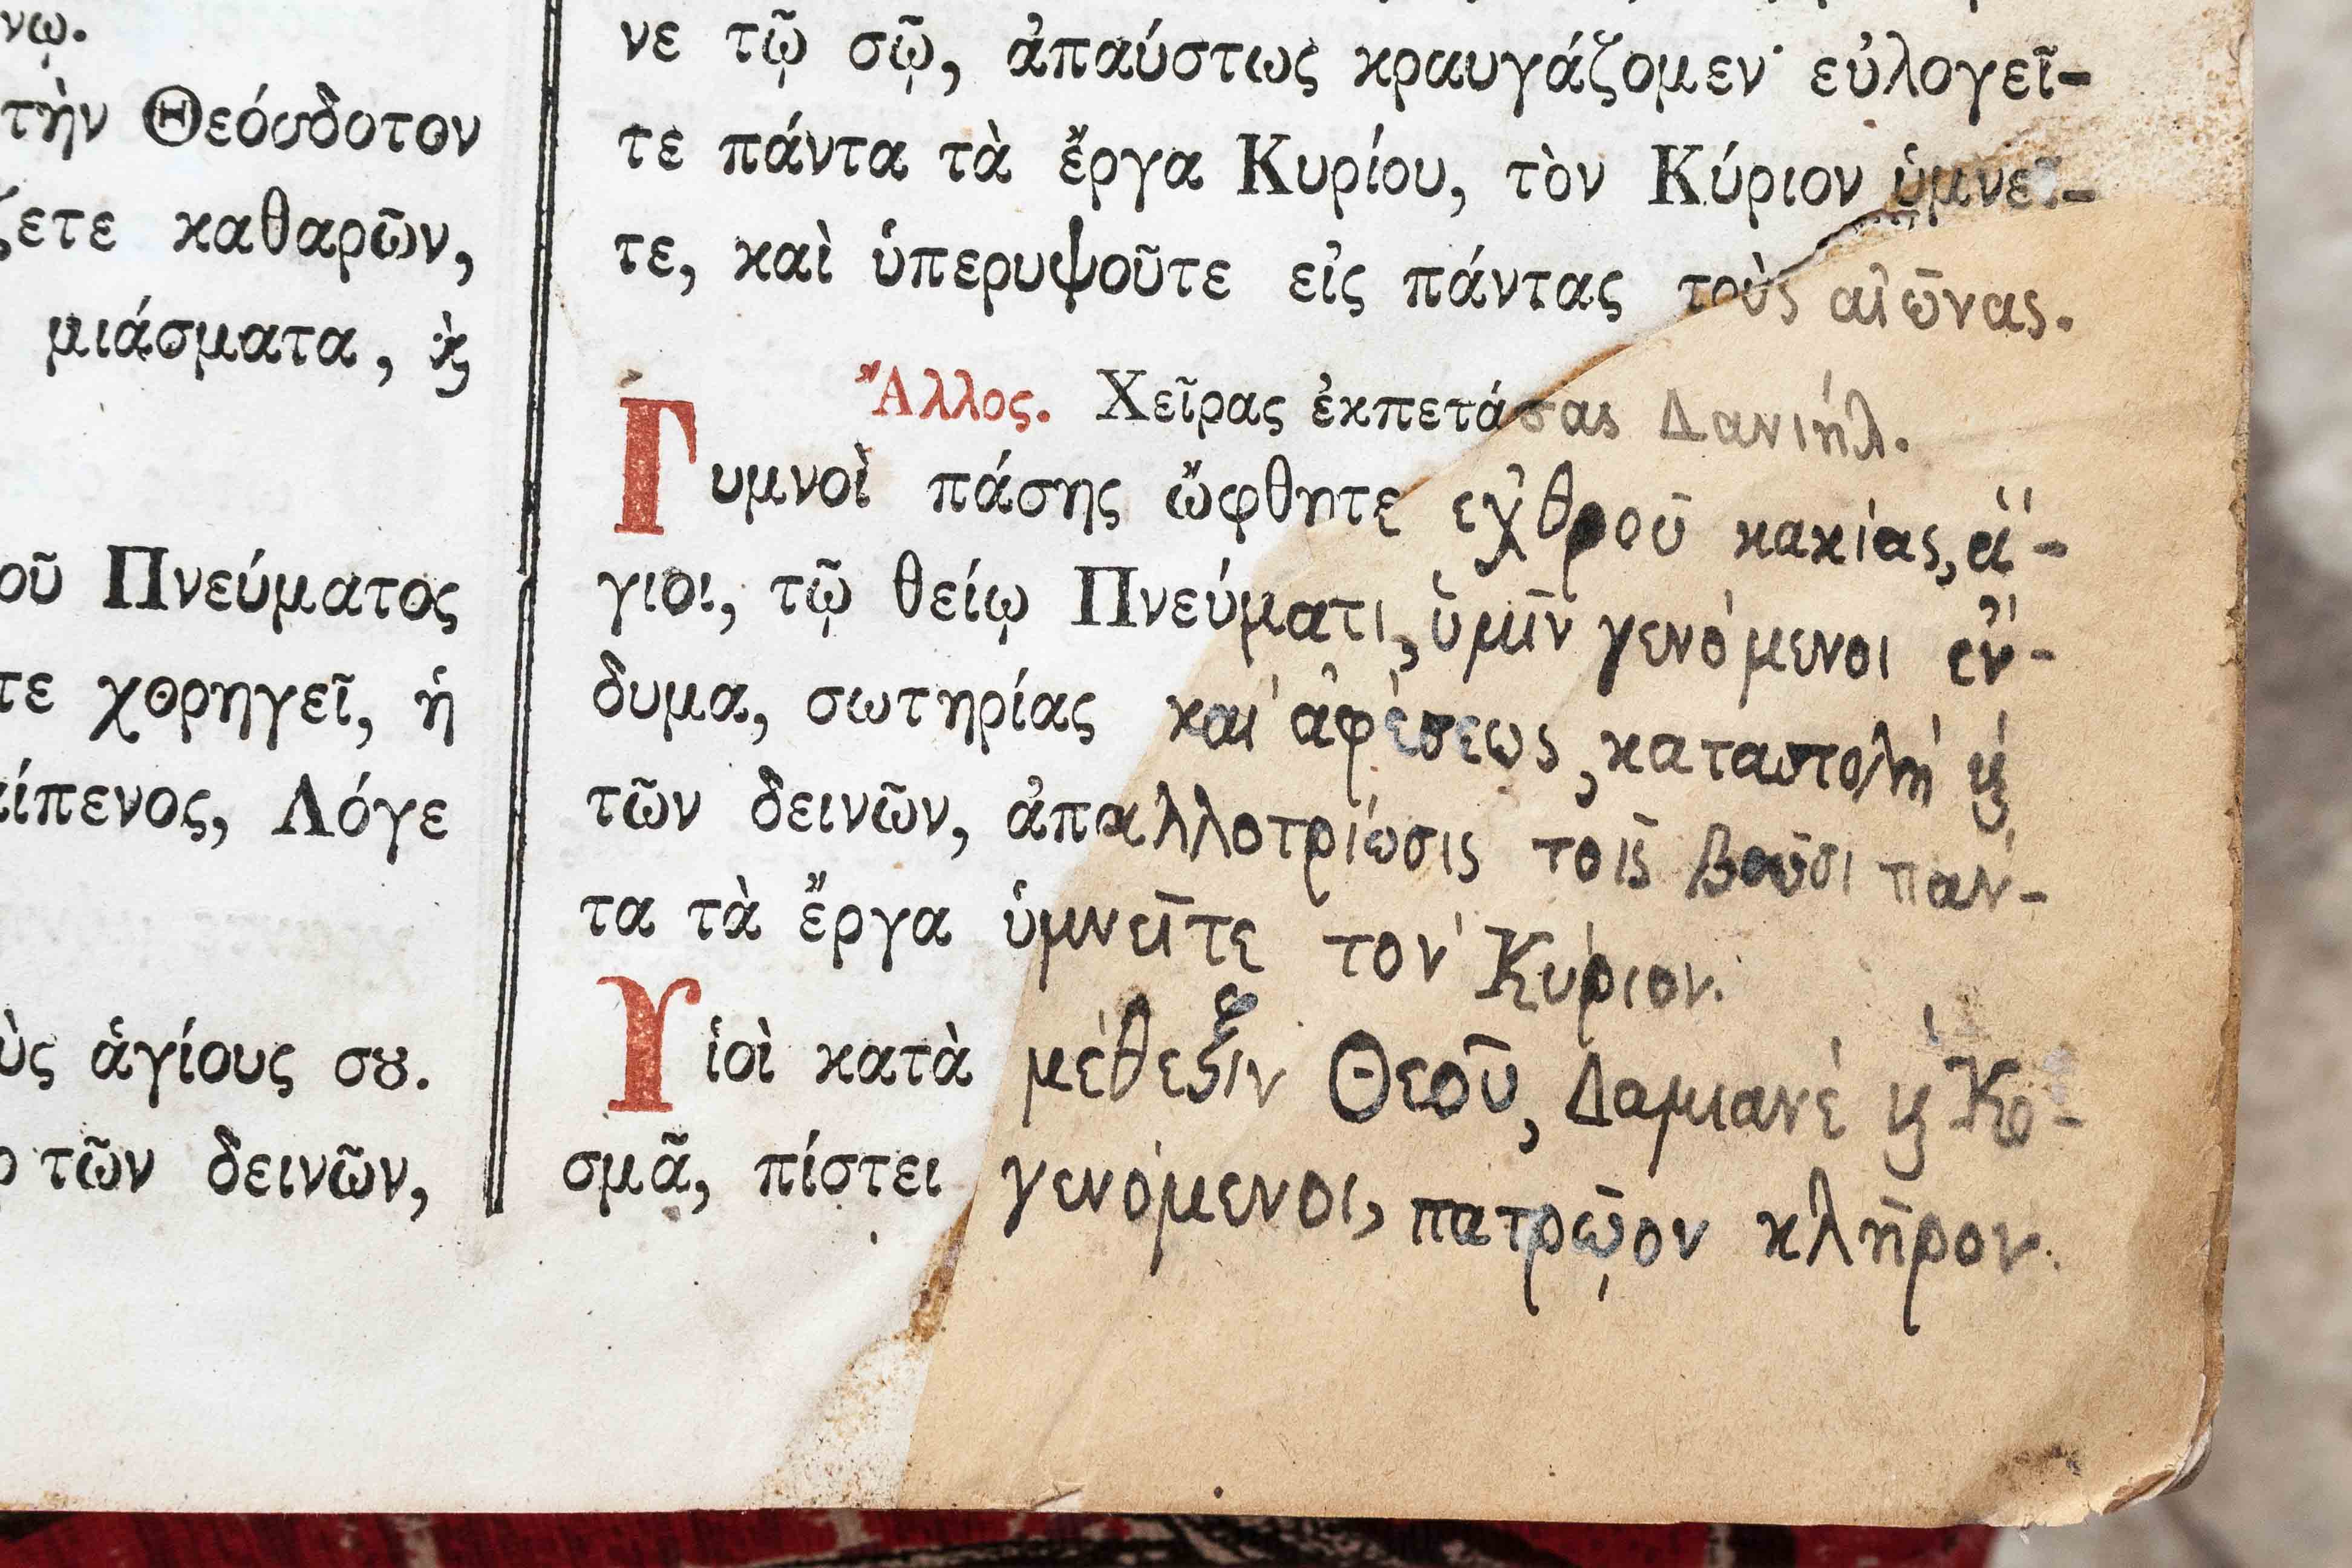 νῳ.
τὴν Θεόσδοτον
ζετε καθαρῶν,
μιάσματα, ϗ̀
οῦ Πνεύματος
τε χορηγεῖ, ἡ
είπενος, Λόγε
ὺς ἁγίους σȣ.
ο τῶν δεινῶν,
νε τῷ σῷ, ἀπαύστως κραυγάζομεν· εὐλογεῖ-
τε πάντα τὰ ἔργα Κυρίου, τὸν Κύριον ὑμνεῖ-
τε, καὶ ὑπερυψοῦτε εἰς πάντας τοὺς αἰῶνας.
Ἄλλος. Χεῖρας ἐκπετάσας Δανιήλ.
Γυμνοὶ πάσης ὤφθητε ἐχθροῦ κακίας, ἅ-
γιοι, τῷ θείῳ Πνεύματι, ὑμῖν γενόμενοι ἔν-
δυμα, σωτηρίας καὶ ἀφέσεως, καταστολὴ ϗ̀
τῶν δεινῶν, ἀπαλλοτρίωσις τοῖς βοῶσι πάν-
τα τὰ ἔργα ὑμνεῖτε τὸν Κύριον.
Υἱοὶ κατὰ μέθεξιν Θεοῦ, Δαμιανέ ϗ̀ Κο-
σμᾶ, πίστει γενόμενοι, πατρῷον κλῆρον.